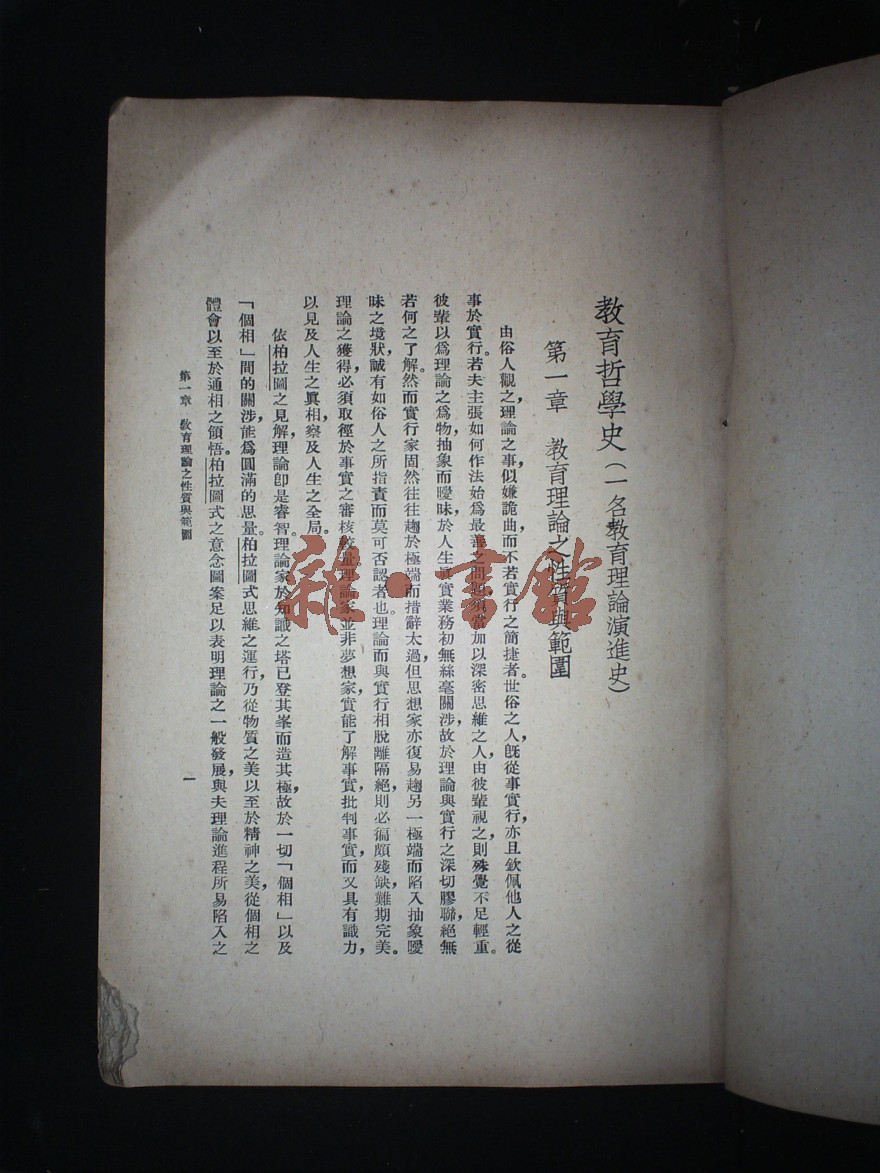 教育哲學史(一名教育理論演進史)
第一章 教育理論之性質與範圍
由俗人觀之,理論之事,似嫌詭曲,而不若實行之簡捷者。世俗之人,旣從事實行,亦且欽佩他人之從
事於實行。若夫主張如何作法始爲最善之問題須當加以深密思維之人,由彼輩視之,則殊覺不足輕重。
彼輩以爲理論之爲物,抽象而曖昧,於人生眞實業務初無絲毫關涉,故於理論與實行之深切膠聯,絕無
若何之了解。然而實行家固然往往趨於極端而措辭太過,但思想家亦復易趨另一極端而陷入抽象曖
昧之境狀,誠有如俗人之所指責而莫可否認者也。理論而與實行相脫離隔絕,則必偏頗殘缺,難期完美。
理論之獲得,必須取徑於事實之審核較量。理論家並非夢想家,實能了解事實,批判事實,而又具有識力,
以見及人生之眞相,察及人生之全局。
依柏拉圖之見解,理論卽是睿智。理論家於知識之塔已登其峯而造其極,故於一切「個相」以及
「個相」間的關涉,能爲圓滿的思量。柏拉圖式思維之運行,乃從物質之美以至於精神之美,從個相之
體會以至於通相之領悟。柏拉圖式之意念圖案足以表明理論之一般發展,與夫理論進程所易陷入之
第一章 敎育理論之性質與範圍
一
雜·書館